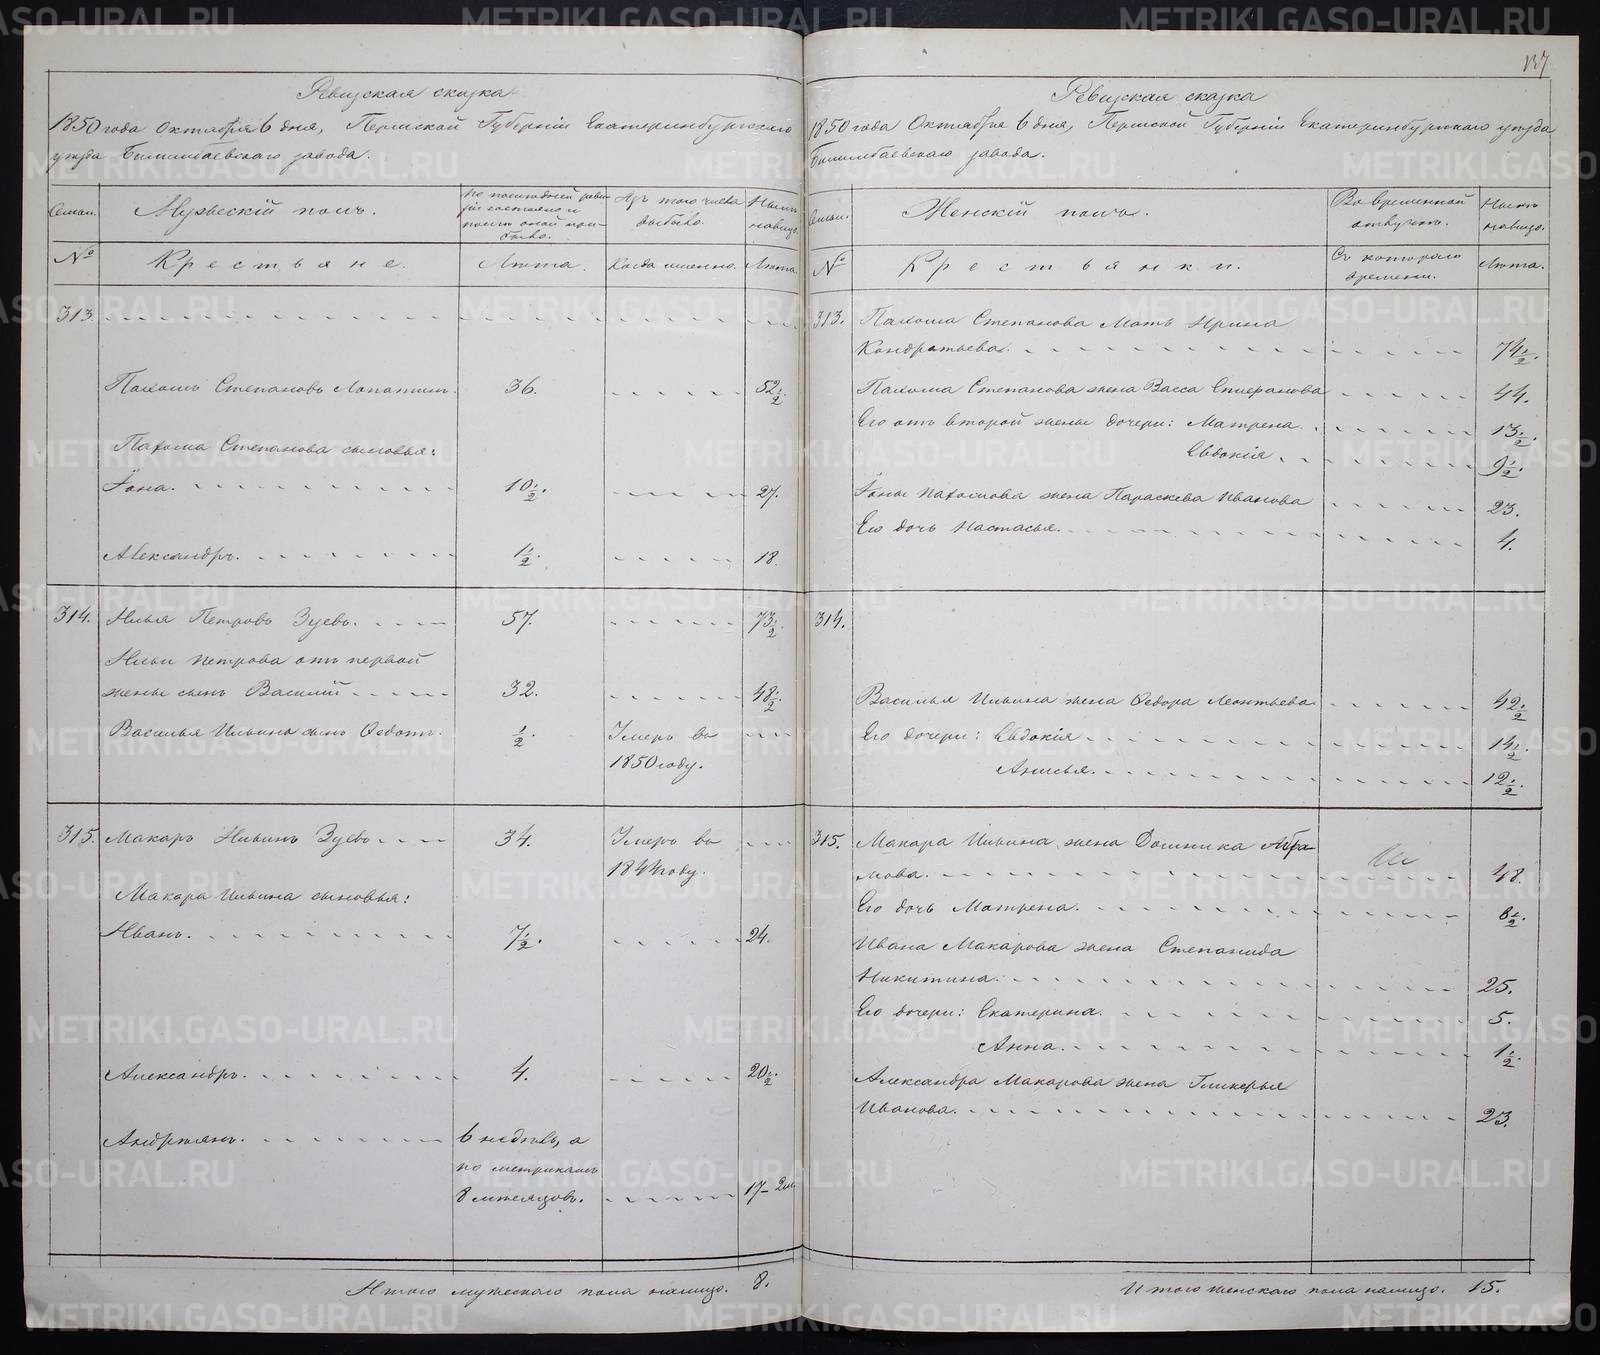 137
Ревизская сказка
1850 года Октября 6 дня, Пермской Губерніи Екатеринбургскаго
уезда Билимбаевскаго завода.
Семьи. Мужескій полъ. По последней реви-
зіи состояло и
после оной при-
было. Изъ того числа
выбыло. Ныне
налицо.
№ Крестьяне. Лета. Когда именно. Лета.
313.
Пахомъ Степановъ Лопатинъ. 36. 52 1/2.
Пахома Степанова сыновья:
Іона. 10 1/2. 27.
Александръ. 1 1/2. 18.
314. Илья Петровъ Зуевъ. 57. 73 1/2
Ильи Петрова отъ первой
жены сынъ Василій 32. 48 1/2.
Василья Ильина сынъ Федотъ. 1/2. Умеръ въ
1850 году.
315. Макаръ Ильинъ Зуевъ 34. Умеръ въ
1844 году.
Макара Ильина сыновья:
Иванъ. 7 1/2. 24.
Александръ. 4. 20 1/2.
Андреянъ. 6 недель, а
по метрикамъ
8 месяцовъ. 17 - 2 м.
Итого мужескаго пола налицо. 8.
Ревизская сказка
1850 года Октября 6 дня, Пермской Губерніи Екатеринбургскаго уезда
Билимбаевскаго завода.
Семьи. Женскій полъ. Во временной
отлучке. Ныне
налицо.
№ Крестьянки. Съ котораго
времени. Лета.
313. Пахома Степанова Мать Ирина
Кондратьева. 74 1/2.
Пахома Степанова жена Васса Спиранова 44.
Его отъ второй жены дочери: Матрена. 13 1/2.
Евдокія. 9 1/2.
Іоны Пахомова жена Параскева Иванова 23.
Его дочь Настасья. 4.
314.
Василья Ильина жена Федора Леонтьева 42 1/2
Его дочери: Евдокія 14 1/2.
Анисья. 12 1/2.
315. Макара Ильина жена Домника Абра-
мова. 48.
Его дочь Матрена. 8 1/2.
Ивана Макарова жена Степанида
Никитина. 25.
Его дочери: Екатерина. 5.
Анна. 1 1/2.
Александра Макарова жена Гликерья
Иванова. 23.
Итого женскаго пола налицо. 15.
METRIKI.GASO-URAL.RU